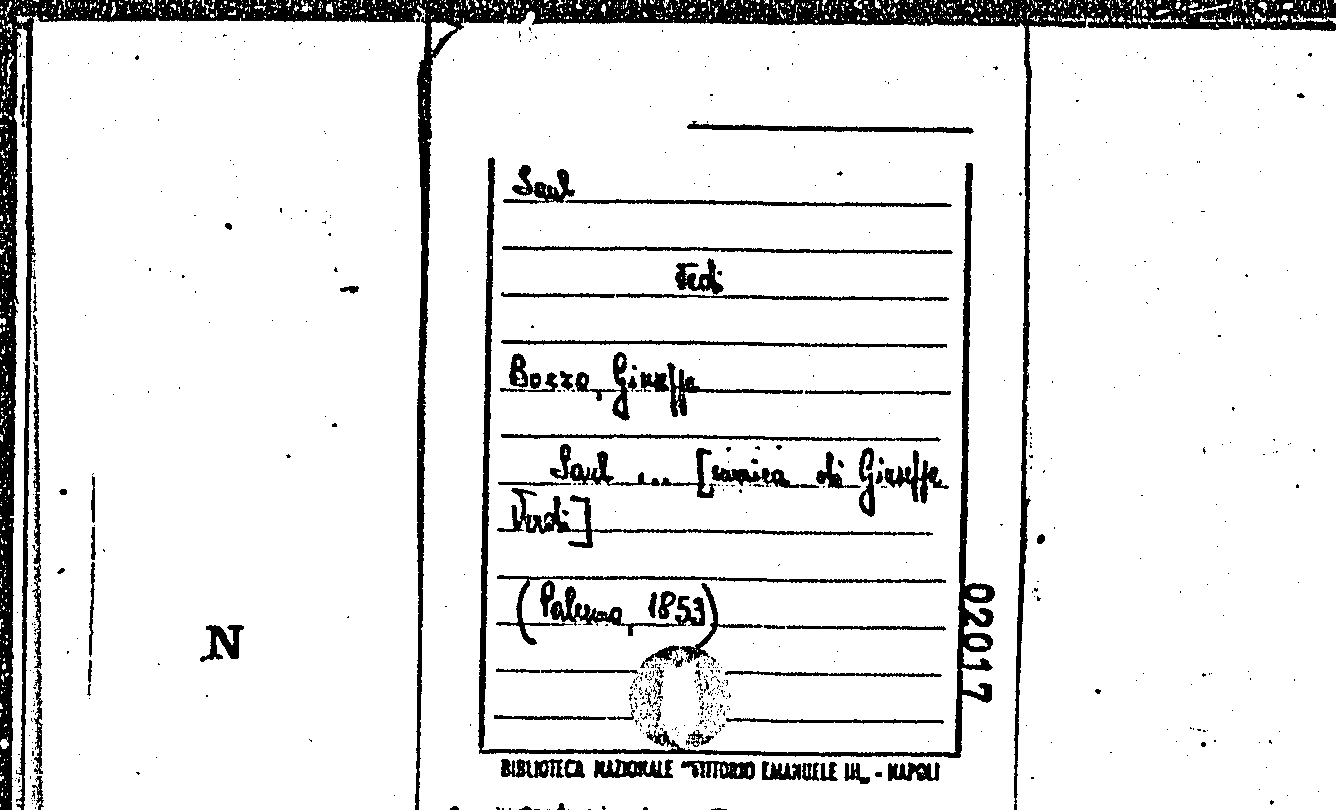 Saul
Vedi
Bozzo, Giuseppe
Saul ... [musica di Giuseppe
Verdi]
(Palermo, 1853)
N
02017
BIBLIOTECA NAZIONALE "VITTORIO EMANUELE III„ - NAPOLI